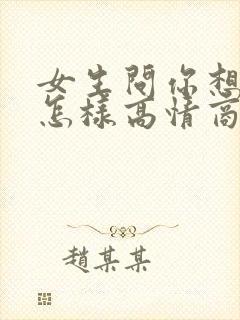 女生問你想
怎樣高情商
趙某某